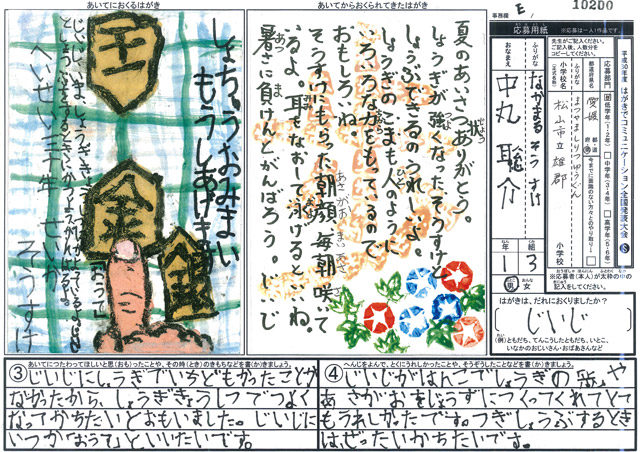 あいてにおくるはがき
王
しょちゅうおみまい
もうしあげます
金
金
へいせい三十年
そうすけ
あいてからおくられてきたはがき
夏のあいさつ状ありがとう。
しょうぎが強くなったそうすけと
しょうぶできるのうれしいよ。
しょうぎのこまも人のように
いろいろな力をもっているので
おもしろいね。
そうすけにもらった朝顔、毎朝咲いて
いるよ。耳をなおして泳げるといいね。
暑さに負けんとがんばろう。じいじ
事務欄
E
10200
応募用紙
※応募は一人1作品です。
平成30年度 はがきでコミュニケーション全国発表大会
ふりがな
おなまえ
なかまる そうすけ
中丸 聡介
小学校名
(正式名称)
都道府県名
愛媛
都・道
府・県
松山市立雄郡
小学校
応募部門
低学年(1・2年)
中学年(3・4年)
高学年(5・6年)
1
年
3
組
男
女
※応募者(本人)が太枠の中の
記入をしてください。
はがきは、だれにおくりましたか?
じいじ
(例)ともだち、てんこうしたともだち、いとこ、
いなかのおじいさん・おばあさんなど
あいてにつたわってほしいと思(おも)ったことや、その時(とき)のきもちなどを書(か)きましょう。
③じいじにしょうぎでいちどもかったことが
なかったから、しょうぎきょうしつでつよく
なってかちたいとおもいました。じいじに
いつか「おうて」といいたいです。
へんじをよんで、とくにうれしかったことや、そうぞうしたことなどを書(か)きましょう。
④じいじがはんこでしょうぎの絵や
あさがおをじょうずにつくってくれてとて
もうれしかったです。つぎしょうぶするとき
は、ぜったいかちたいです。